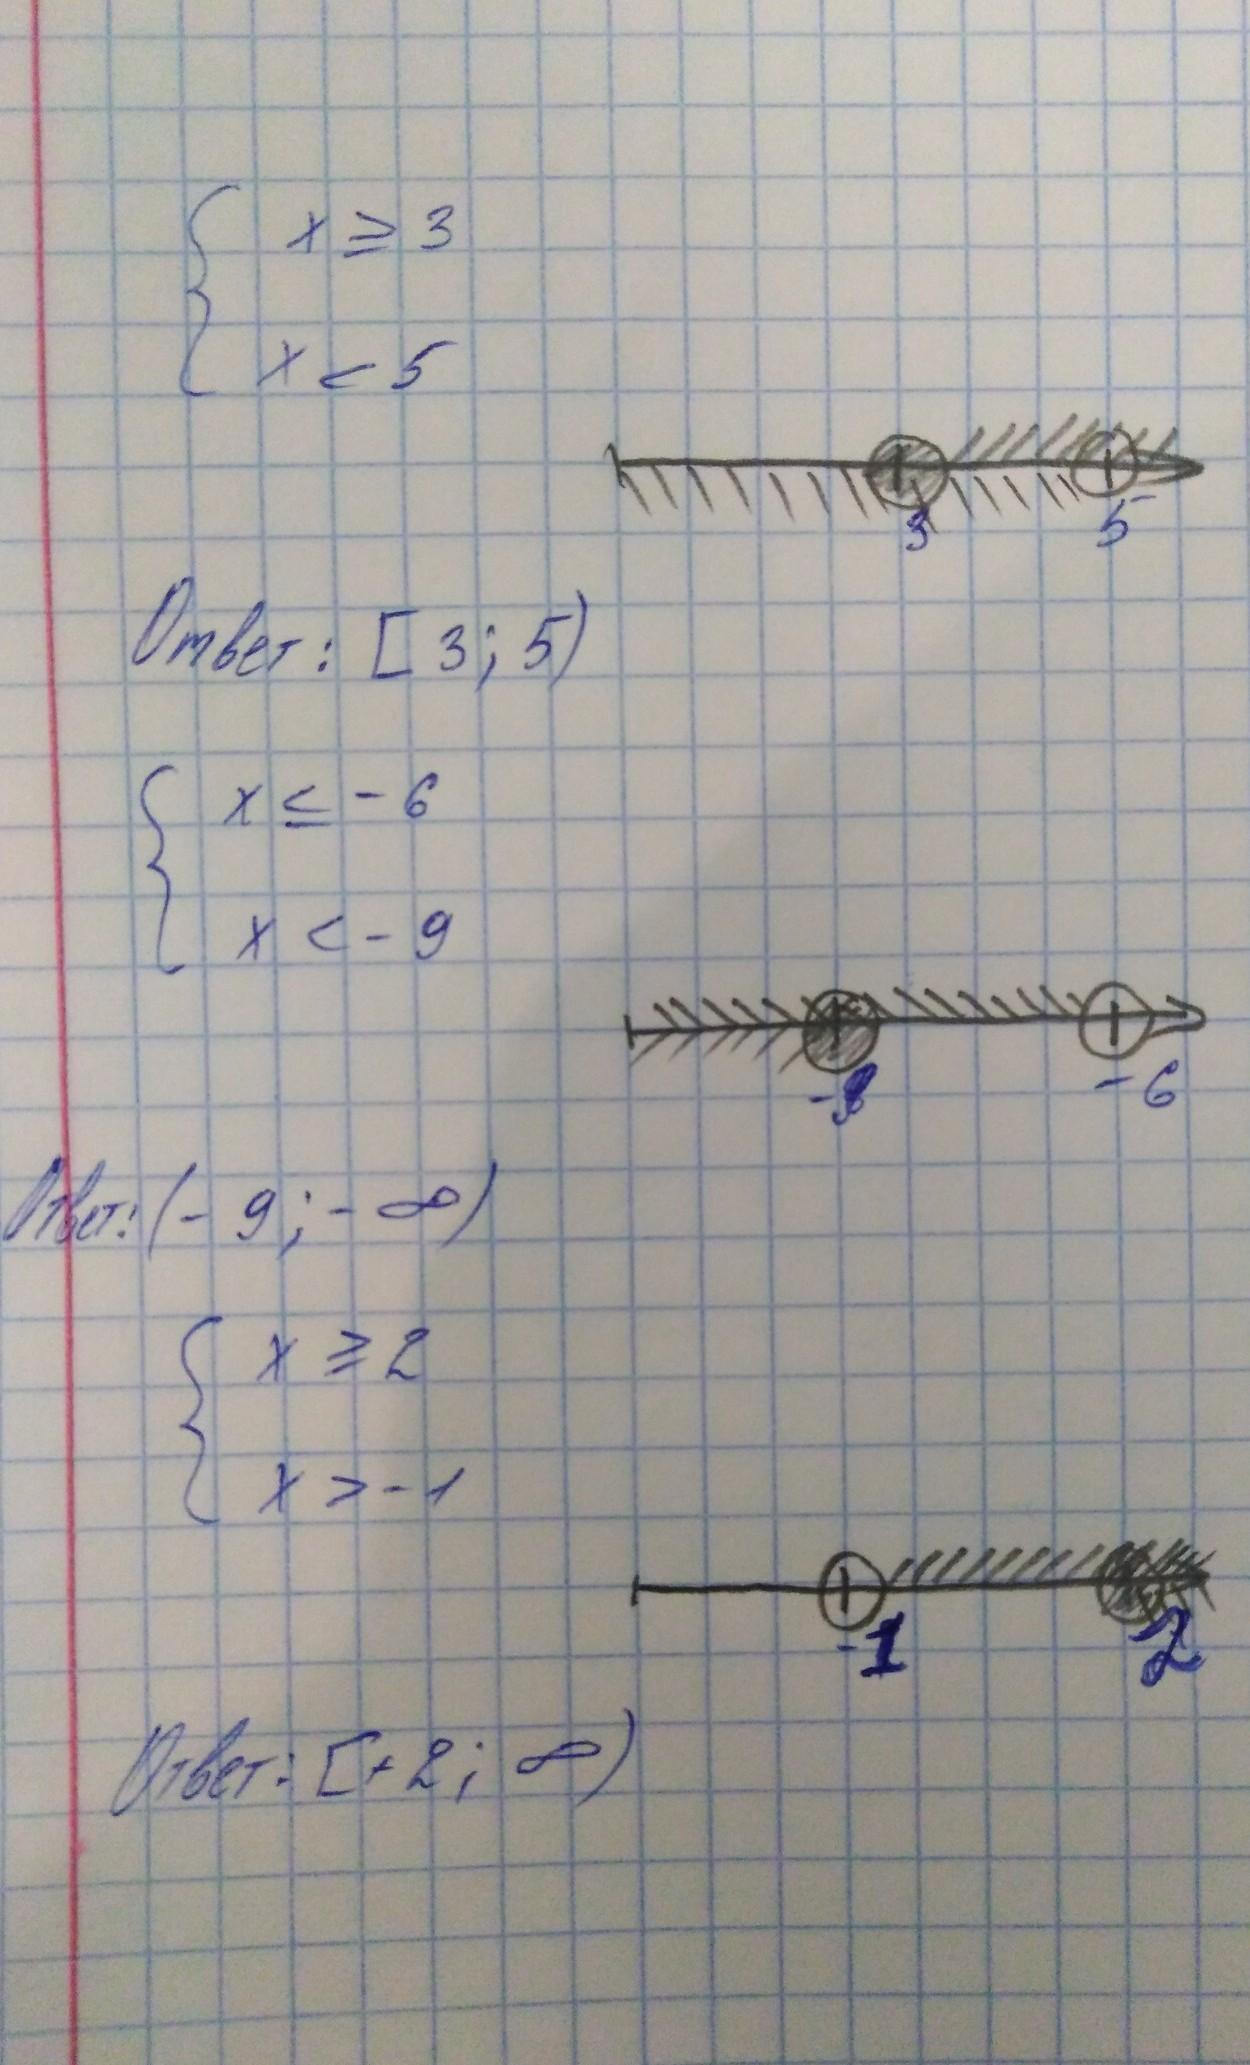 x ≥ 3
x < 5
3 5
Ответ: [3; 5)
x ≤ -6
x < -9
-9 -6
Ответ: (-9; -∞)
x ≥ 2
x > -1
-1 2
Ответ: [+2; ∞)